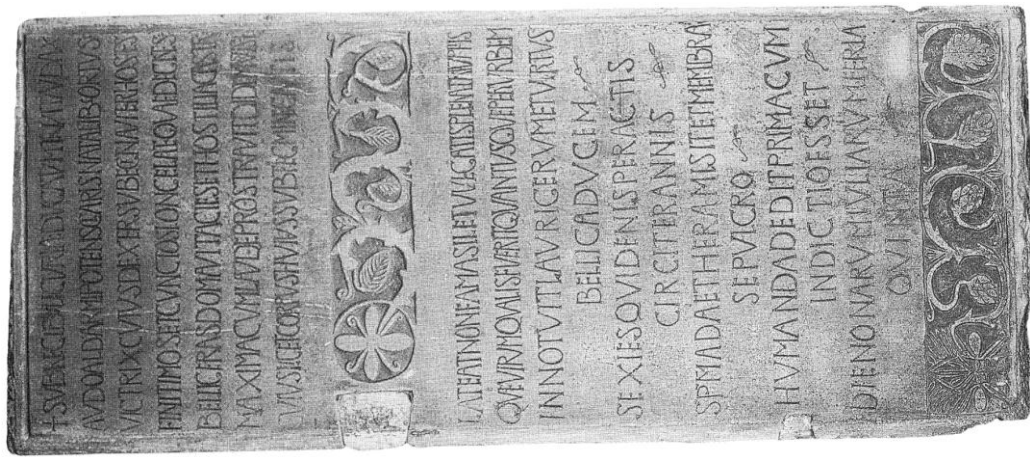 + SVB REGIBVS LIGVRIAE DVCATVM TENVIT AVDAX
AVDOALD ARMIPOTENS CLARIS NATALIBVS ORTVS
VICTRIX CVIVS DEXTER SVBEGIT NAVITER HOSTES
FINITIMOS ET CVNCTOS LONGE LATEQVE DEGENTES
BELLIGERAS DOMAVIT ACIES ET HOSTILIA CASTRA
MAXIMA CVM LAVDE PROSTRAVIT DIDIMVS ISTE
CVIVS IACET CORPVS HVIVS SVB TEGMINE CAVTIS
LATEAT NON FAMA SILET VVLGATIS FAMA TRIVMPHIS
QVE VIRVM QVALIS FVERIT QVANTVSQVE PER VRBEM
INNOTVIT LAVRIGERVM ET VIRTVS
BELLICA DVCEM
SEXIES QVI DENIS PERACTIS
CIRCITER ANNIS
SPM AD AETHERA MISIT ET MEMBRA
SEPVLCRO
HVMANDA DEDIT PRIMA CVM
INDICTIO ESSET
DIE NONARVM IVLIARVM FERIA
QVINTA